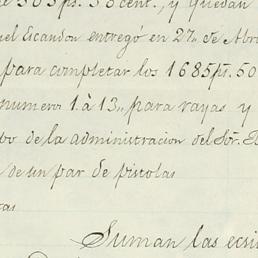 de 565 ps. 50 cent., y quedan
uel Escandon entregó en 27 de Abri
para completar los 1685 ps. 50
numero 1. à 13,, para rayas y
bo de la administracion del Sr. D
de un par de pistolas
tas
Suman las ecsi